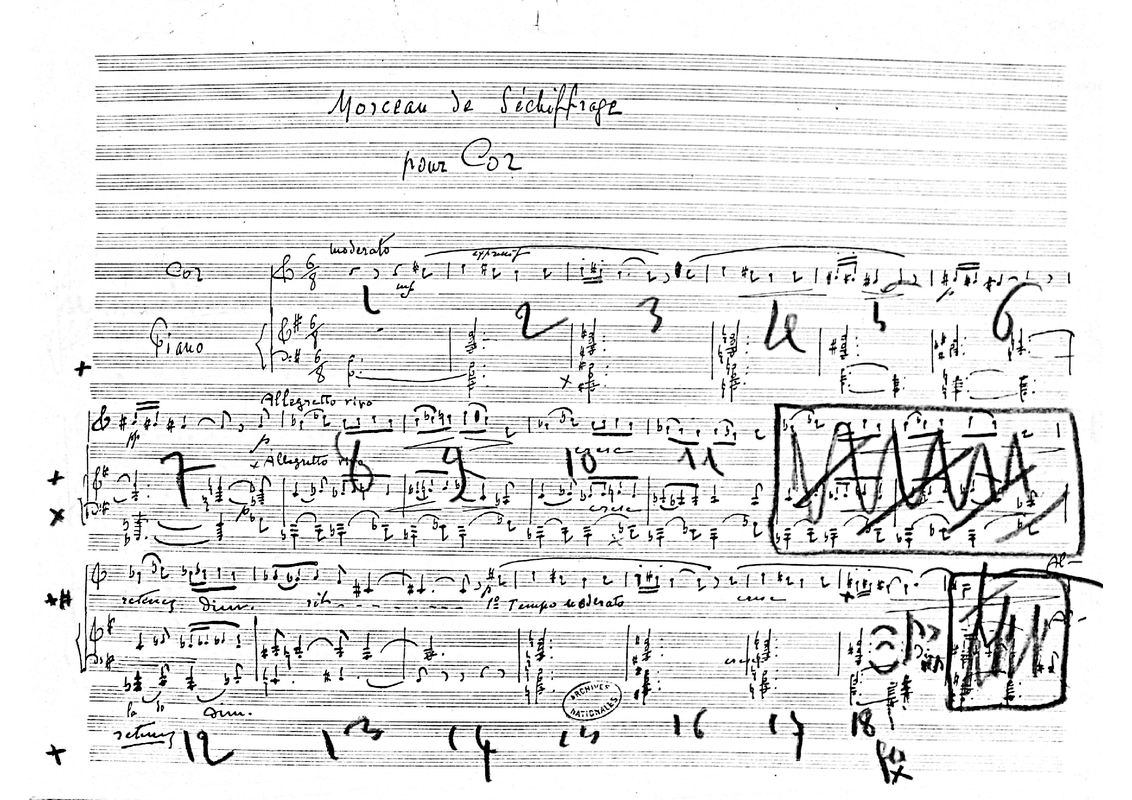 Morceau de Déchiffrage
pour Cor
moderato
Cor 6 8 mf expressif
1 2 3 4 5 6
Piano 6 8
6 8
Allegretto vivo
pp p
Allegretto vivo
7 8 9 10 11
cresc
cresc
Al-
retenez dim. rit. 1º Tempo moderato cresc
Al-
cresc
dim.
retenez
ARCHIVES NATIONALES
12 13 14 15 16 17 18